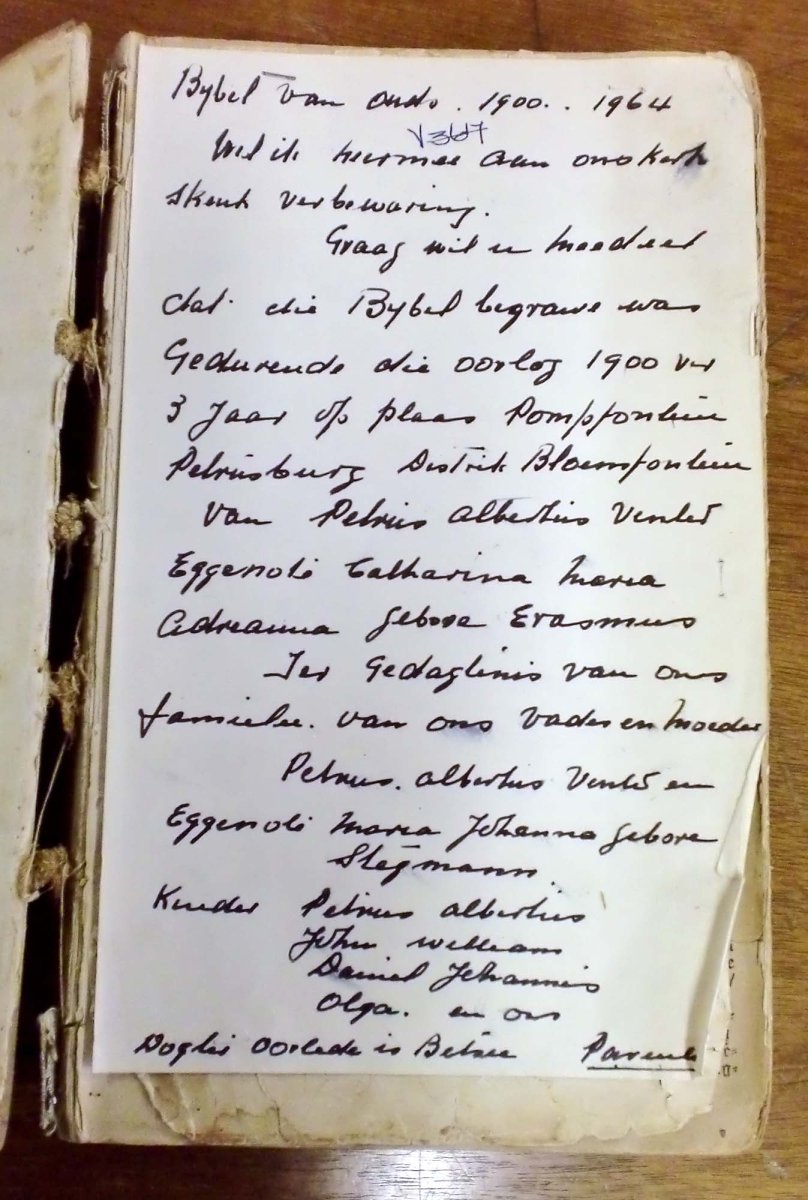 Bybel van ouds. 1900.. 1964
V3617
Wil ik hiermee aan ons kerk
skenk ver bewaring.
Graag wil u meedeel
dat die Bybel begrawe was
Gedurende die oorlog 1900 ver
3 Jaar op plaas Pompfontein
Petrusburg Distrik Bloemfontein
Van Petrus Albertus Venter
Eggenote Catharina Maria
Adreanna gebore Erasmus
Ter Gedagtinis van ons
familie. van ons Vader en Moeder
Petrus. Albertus Venter en
Eggenote Maria Johanna gebore
Stegmann.
Kinder Petrus Albertus
John William
Daniel Johannis
Olga. en ons
Dogter Oorlede is Betsie